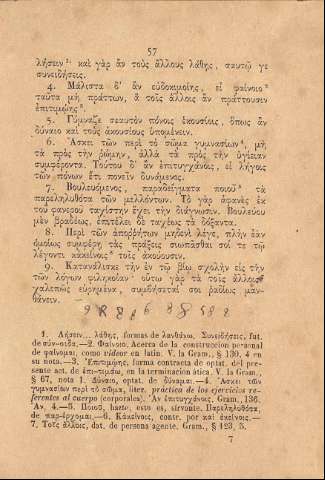 57
λήσειν¹· καὶ γὰρ ἂν τοὺς ἄλλους λάθῃς, σαυτῷ γε
συνειδήσεις.
4. Μάλιστα δ' ἂν εὐδοκιμοίης, εἰ φαίνοιο²
ταῦτα μὴ πράττων, ἃ τοῖς ἄλλοις ἂν πράττουσιν
ἐπιτιμῴης³.
5. Γύμναζε σεαυτὸν πόνοις ἑκουσίοις, ὅπως ἂν
δύναιο καὶ τοὺς ἀκουσίους ὑπομένειν.
6. Ἄσκει τῶν περὶ τὸ σῶμα γυμνασίων⁴, μὴ
τὰ πρὸς τὴν ῥώμην, ἀλλὰ τὰ πρὸς τὴν ὑγίειαν
συμφέροντα. Τούτου δ' ἂν ἐπιτυγχάνοις, εἰ λήγοις
τῶν πόνων ἔτι πονεῖν δυνάμενος.
7. Βουλευόμενος, παραδείγματα ποιοῦ⁵ τὰ
παρεληλυθότα τῶν μελλόντων. Τὸ γὰρ ἀφανὲς ἐκ
τοῦ φανεροῦ ταχίστην ἔχει τὴν διάγνωσιν. Βουλεύου
μὲν βραδέως, ἐπιτέλει δὲ ταχέως τὰ δόξαντα.
8. Περὶ τῶν ἀποῤῥήτων μηδενὶ λέγε, πλὴν ἐὰν
ὁμοίως συμφέρῃ τὰς πράξεις σιωπᾶσθαι σοί τε τῷ
λέγοντι κἀκείνοις⁶ τοῖς ἀκούουσιν.
9. Κατανάλισκε τὴν ἐν τῷ βίῳ σχολὴν εἰς τὴν
τῶν λόγων φιληκοΐαν· οὕτω γὰρ τὰ τοῖς ἄλλοις⁷
χαλεπῶς εὑρημένα, συμβήσεταί σοι ῥᾳδίως μαν-
θάνειν.
1. Λήσειν... λάθῃς, formas de λανθάνω. Συνειδήσεις, fut.
de σύν-οιδα.—2. Φαίνοιο. Acerca de la construccion personal
de φαίνομαι, como videor en latin. V. la Gram., § 130, 4 en
su nota.—3. Ἐπιτιμῴης, forma contracta de optat. del pre-
sente act. de ἐπι-τιμάω, en la terminacion ática. V. la Gram.,
§ 67, nota 1. Δύναιο, optat. de δύναμαι.—4. Ἄσκει τῶν
γυμνασίων περὶ τὸ σῶμα, liter. práctica de los ejercicios re-
ferentes al cuerpo (corporales). Ἂν ἐπιτυγχάνοις, Gram., 136.
Ἄν, 4.—5. Ποιοῦ, hazte, esto es, sírvante. Παρεληλυθότα,
de παρ-έρχομαι.—6. Κἀκείνοις, contr. por καὶ ἐκείνοις.—
7. Τοῖς ἄλλοις, dat. de persona agente. Gram., § 123, 5.
7